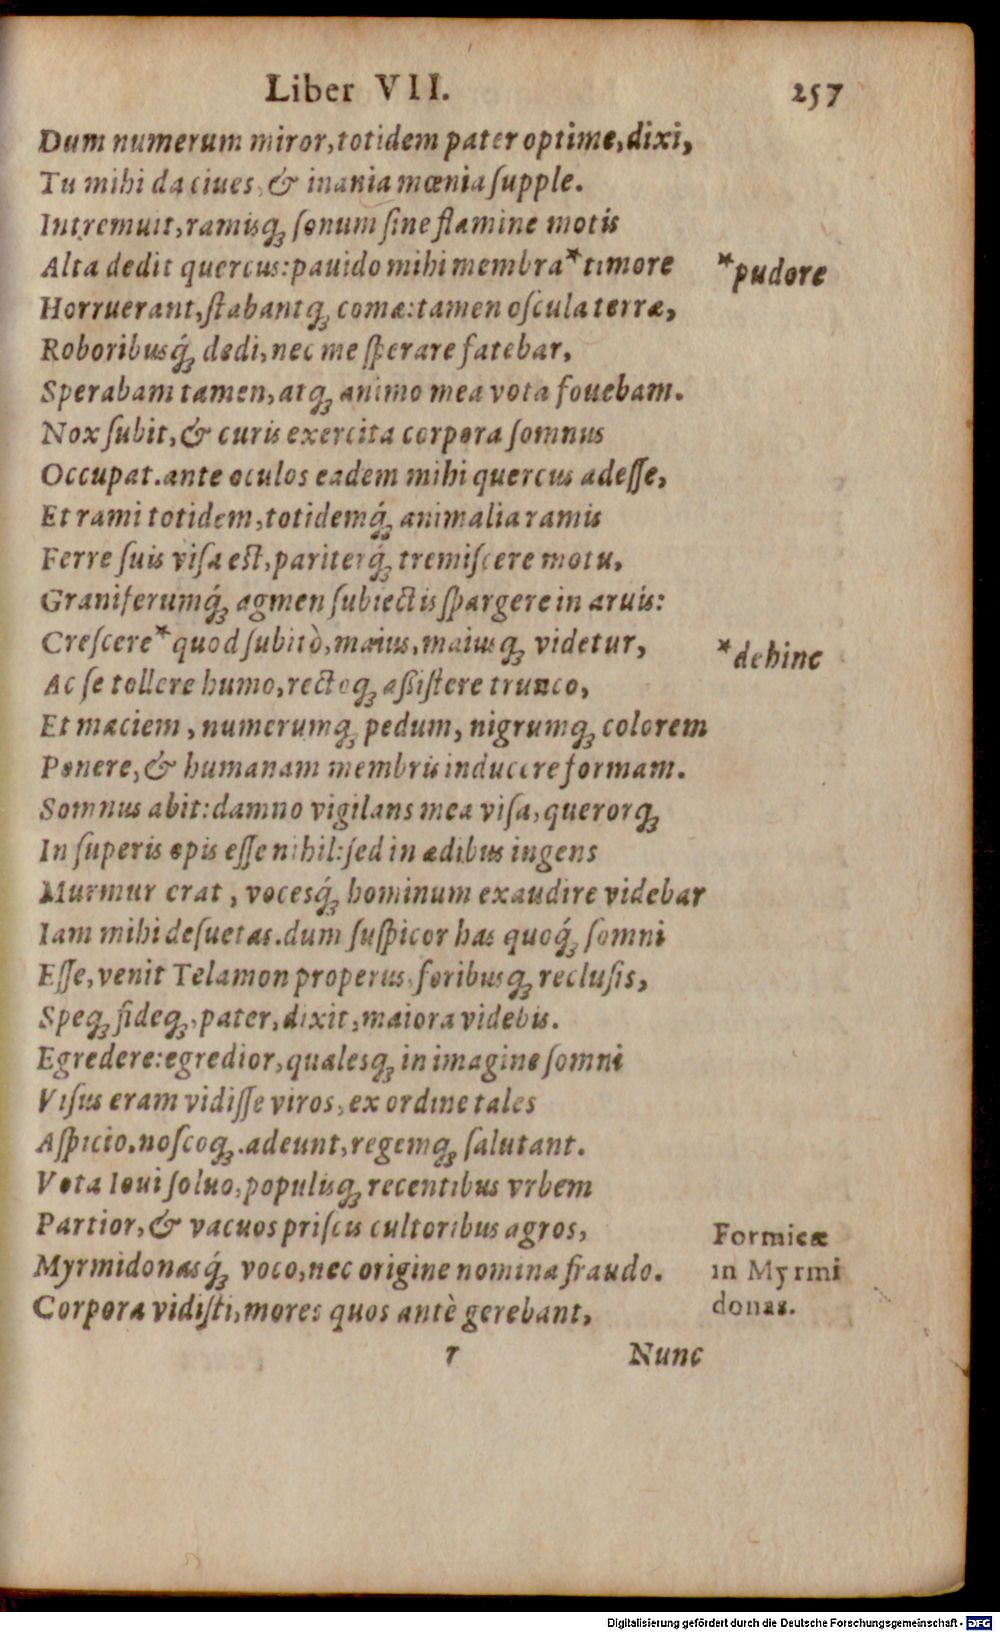 Liber VII. 257
Dum numerum miror, totidem pater optime, dixi,
Tu mihi da ciues, & inania mœnia ſupple.
Intremuit, ramisq́; ſonum ſine flamine motis
Alta dedit quercus: pauido mihi membra * timore
*pudore
Horruerant, ſtabantq; comæ: tamen oſcula terræ,
Roboribusq́; dedi, nec me ſperare fatebar,
Sperabam tamen, atq; animo mea vota fouebam.
Nox ſubit, & curis exercita corpora ſomnus
Occupat. ante oculos eadem mihi quercus adeſſe,
Et rami totidem, totidemq́; animalia ramis
Ferre ſuis viſa eſt, pariterq́; tremiſcere motu,
Graniferumq́; agmen ſubiectis ſpargere in aruis:
Creſcere * quod ſubitò, maius, maiusq; videtur,
*dehinc
Ac ſe tollere humo, rectoq; aßiſtere trunco,
Et maciem, numerumq; pedum, nigrumq; colorem
Ponere, & humanam membris inducere formam.
Somnus abit: damno vigilans mea viſa, querorq;
In ſuperis opis eſſe nihil: ſed in ædibus ingens
Murmur erat, vocesq́; hominum exaudire videbar
Iam mihi deſuetas. dum ſuſpicor has quoq́; ſomni
Eſſe, venit Telamon properus, foribusq; recluſis,
Speq; fideq;, pater, dixit, maiora videbis.
Egredere: egredior, qualesq; in imagine ſomni
Viſus eram vidiſſe viros, ex ordine tales
Aſpicio. noſcoq;. adeunt, regemq; ſalutant.
Vota Ioui ſoluo, populisq; recentibus vrbem
Partior, & vacuos priſcis cultoribus agros,
Myrmidonasq́; voco, nec origine nomina fraudo.
Corpora vidiſti, mores quos antè gerebant,
Formicæ
in Myrmi
donas.
r Nunc
Digitalisierung gefördert durch die Deutsche Forschungsgemeinschaft - DFG